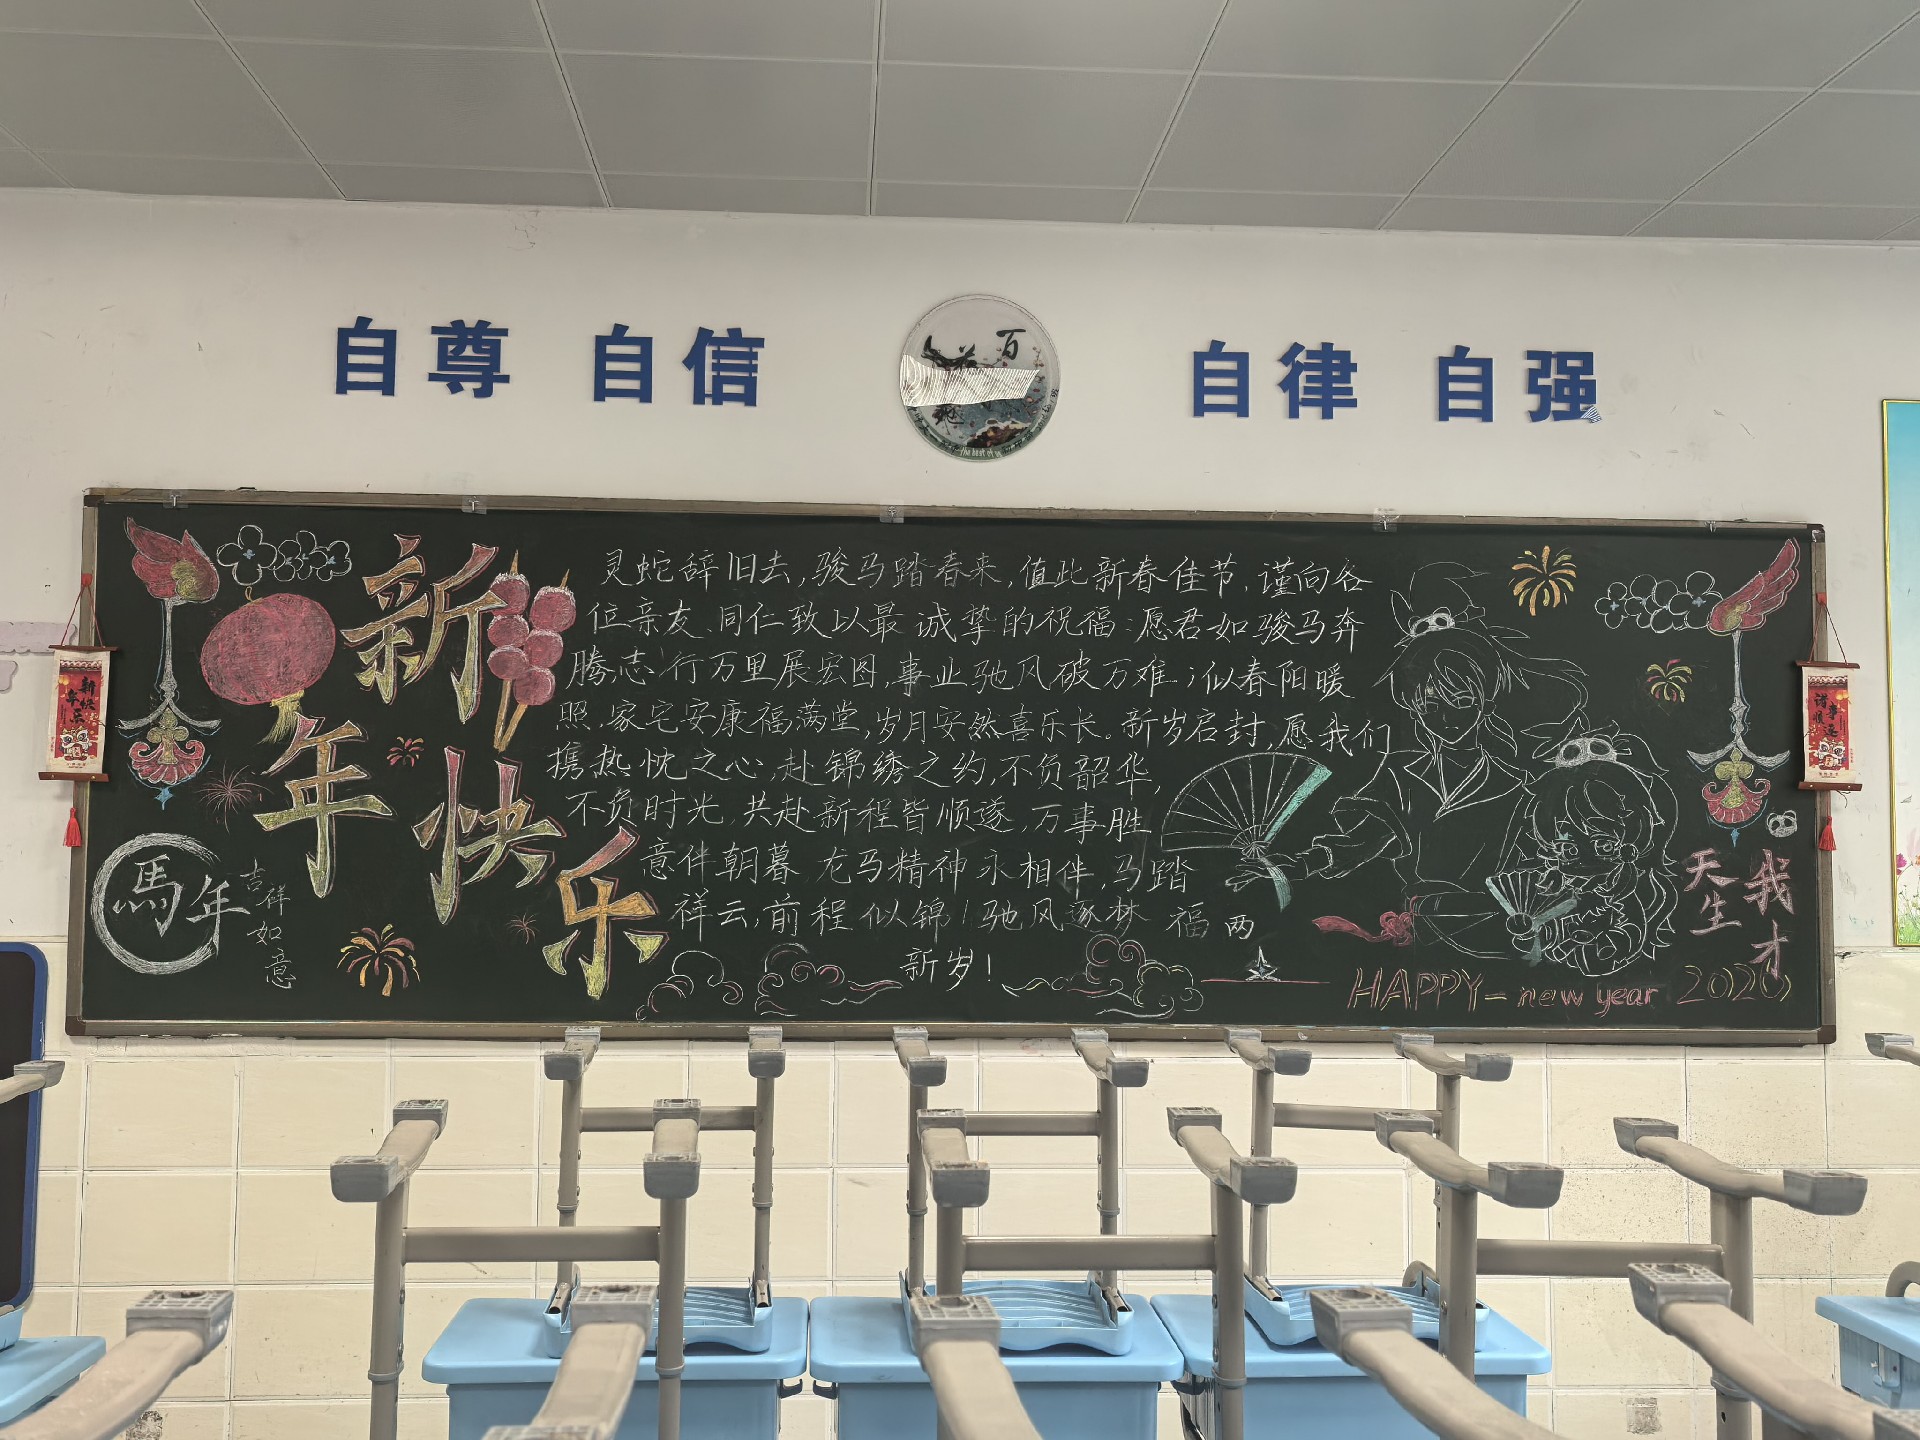 自尊 自信
百
自律 自强
新年快乐
灵蛇辞旧去,骏马踏春来,值此新春佳节,谨向各
位亲友、同仁致以最诚挚的祝福:愿君如骏马奔
腾,志行万里展宏图,事业驰风破万难;似春阳暖
照,家宅安康福满堂,岁月安然喜乐长。新岁启封,愿我们
携热忱之心,赴锦绣之约,不负韶华,
不负时光,共赴新程皆顺遂,万事胜
意伴朝暮,龙马精神永相伴,马踏
祥云,前程似锦!驰风逐梦 福两
新岁!
馬年
吉祥如意
我才
天生
HAPPY-new year 2026
新年快乐
诸事顺遂